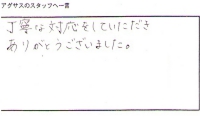 アグサスのスタッフへ一言
丁寧な対応をしていただき
ありがとうございました。